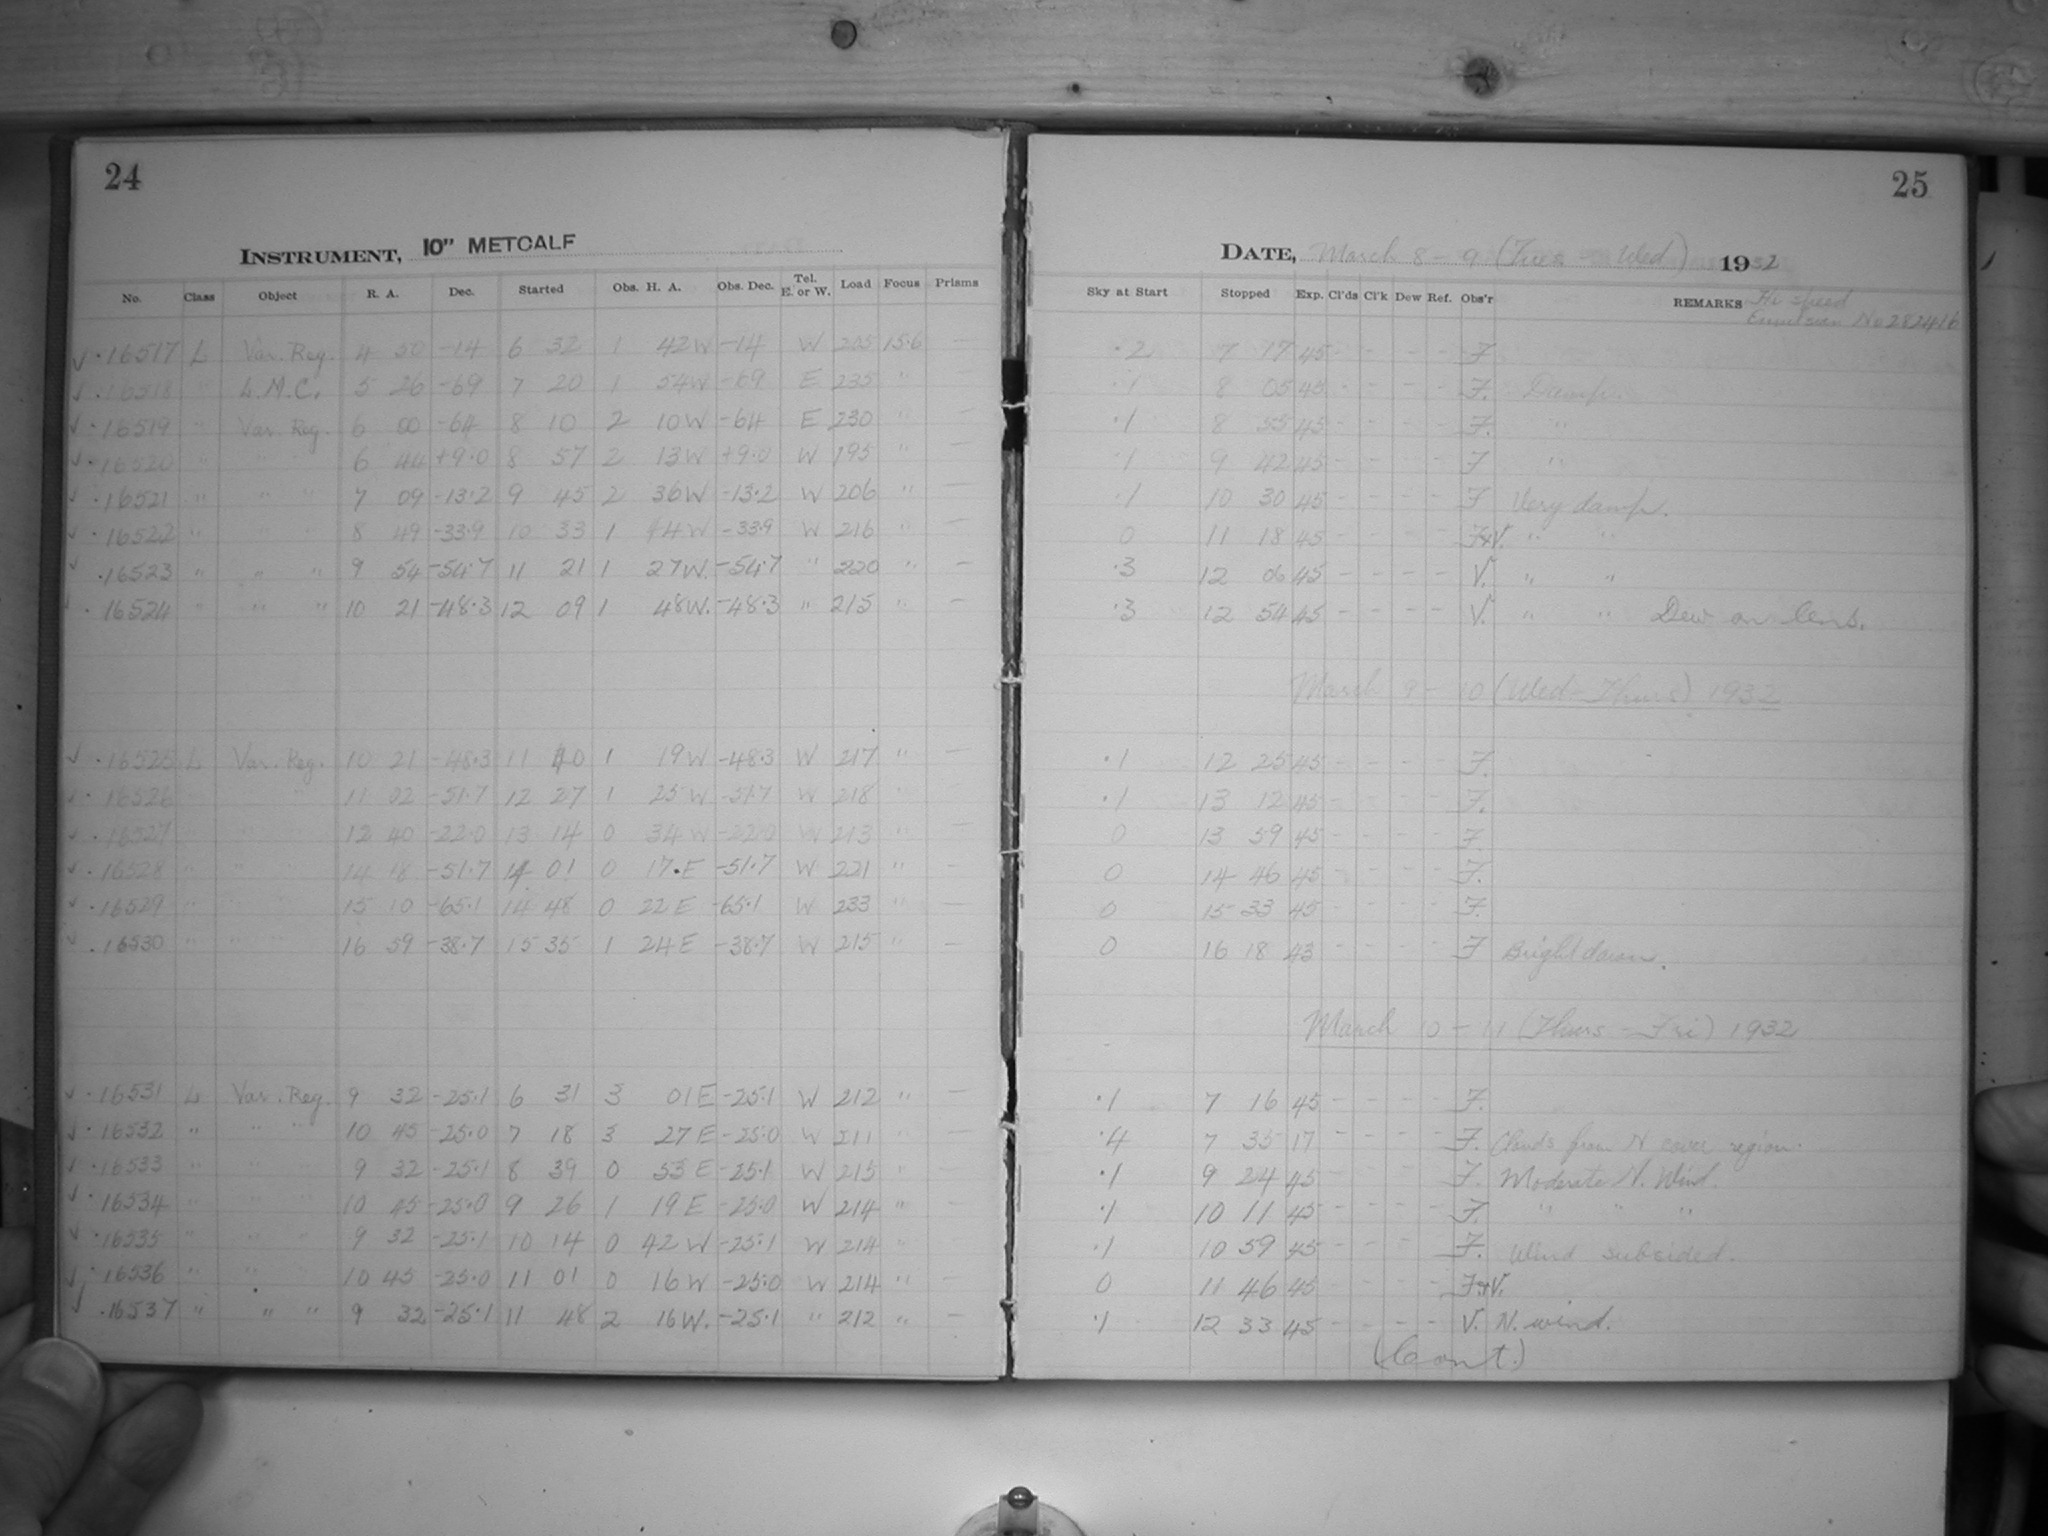 24
INSTRUMENT, 10" METCALF
No. Class Object R. A. Dec. Started Obs. H. A. Obs. Dec. Tel. E. or W. Load Focus Prisms
✓ · 16517 L Var. Reg. 4 50 -14 6 32 1 42 W -14 W 205 15.6 —
✓ · 16518 " L.M.C. 5 26 -69 7 20 1 54 W -69 E 235 " —
✓ · 16519 " Var. Reg. 6 00 -64 8 10 2 10 W -64 E 230 " —
✓ · 16520 " " " 6 44 +9.0 8 57 2 13 W +9.0 W 195 " —
✓ · 16521 " " " 7 09 -13.2 9 45 2 36 W -13.2 W 206 " —
✓ · 16522 " " " 8 49 -33.9 10 33 1 44 W -33.9 W 216 " —
✓ · 16523 " " " 9 54 -54.7 11 21 1 27 W. -54.7 " 220 " —
· 16524 " " " 10 21 -48.3 12 09 1 48 W. -48.3 " 215 " —
✓ · 16525 L Var. Reg. 10 21 -48.3 11 40 1 19 W -48.3 W 217 " —
✓ · 16526 11 02 -51.7 12 27 1 25 W -51.7 W 218 " —
✓ · 16527 " 12 40 -22.0 13 14 0 34 W -22.0 W 213 " —
✓ · 16528 " " " 14 18 -51.7 14 01 0 17 E -51.7 W 221 " —
✓ · 16529 " " " 15 10 -65.1 14 48 0 22 E -65.1 W 233 " —
✓ · 16530 " " " 16 59 -38.7 15 35 1 24 E -38.7 W 215 " —
✓ · 16531 L Var. Reg. 9 32 -25.1 6 31 3 01 E -25.1 W 212 " —
✓ · 16532 " " " 10 45 -25.0 7 18 3 27 E -25.0 W 211 " —
✓ · 16533 " " " 9 32 -25.1 8 39 0 53 E -25.1 W 215 " —
✓ · 16534 " " " 10 45 -25.0 9 26 1 19 E -25.0 W 214 " —
✓ · 16535 " " " 9 32 -25.1 10 14 0 42 W -25.1 W 214 " —
✓ · 16536 " " " 10 45 -25.0 11 01 0 16 W -25.0 W 214 " —
✓ · 16537 " " " 9 32 -25.1 11 48 2 16 W. -25.1 " 212 " —
25
DATE, March 8 - 9 (Tues - Wed) 1932
Sky at Start Stopped Exp. Cl'ds Cl'k Dew Ref. Obs'r REMARKS Hi speed
Emulsion No 282416
.2 7 17 45 - - - - F
.1 8 05 45 - - - - F. Damp.
.1 8 55 45 - - - - F. "
.1 9 42 45 - - - - F "
.1 10 30 45 - - - - F Very damp.
0 11 18 45 - - - - F+V. " "
.3 12 06 45 - - - - V. " "
.3 12 54 45 - - - - V. " " Dew on lens.
March 9 - 10 (Wed - Thurs) 1932
.1 12 25 45 - - - - F.
.1 13 12 45 - - - - F.
0 13 59 45 - - - - F
0 14 46 45 - - - - F.
0 15 33 45 - - - - F.
0 16 18 43 - - - - F Bright dawn.
March 10 - 11 (Thurs - Fri) 1932
.1 7 16 45 - - - - F.
.4 7 35 17 - - - - F. Clouds from N cover region.
.1 9 24 45 - - - - F. Moderate N. Wind.
.1 10 11 45 - - - - F. " " "
.1 10 59 45 - - - - F. Wind subsided.
0 11 46 45 - - - - F+V.
.1 12 33 45 - - - - V. N. wind.
(Cont.)